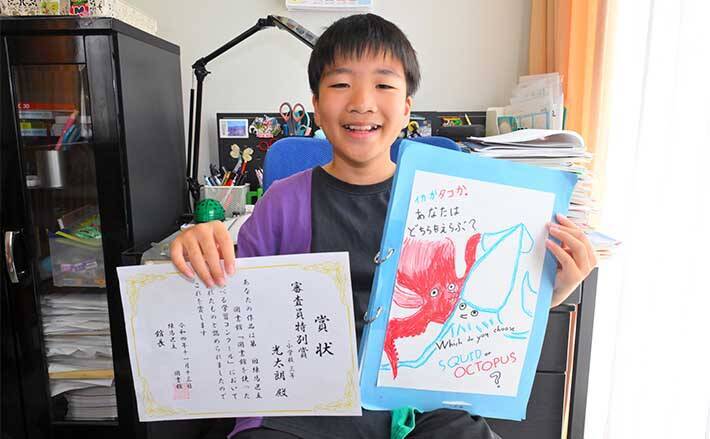 賞状
審査員特別賞
小学校 三年
光太朗 殿
あなたの作品は第 回練馬区立
図書館「図書館を使った
べる学習コンクール」において
れたものと認められましたので
これを賞します
令和四年十一月十三日
練馬区立 図書館
館長
イカかタコか。
あなたは
どちらをえらぶ?
Which do you choose
SQUID or
OCTOPUS
?